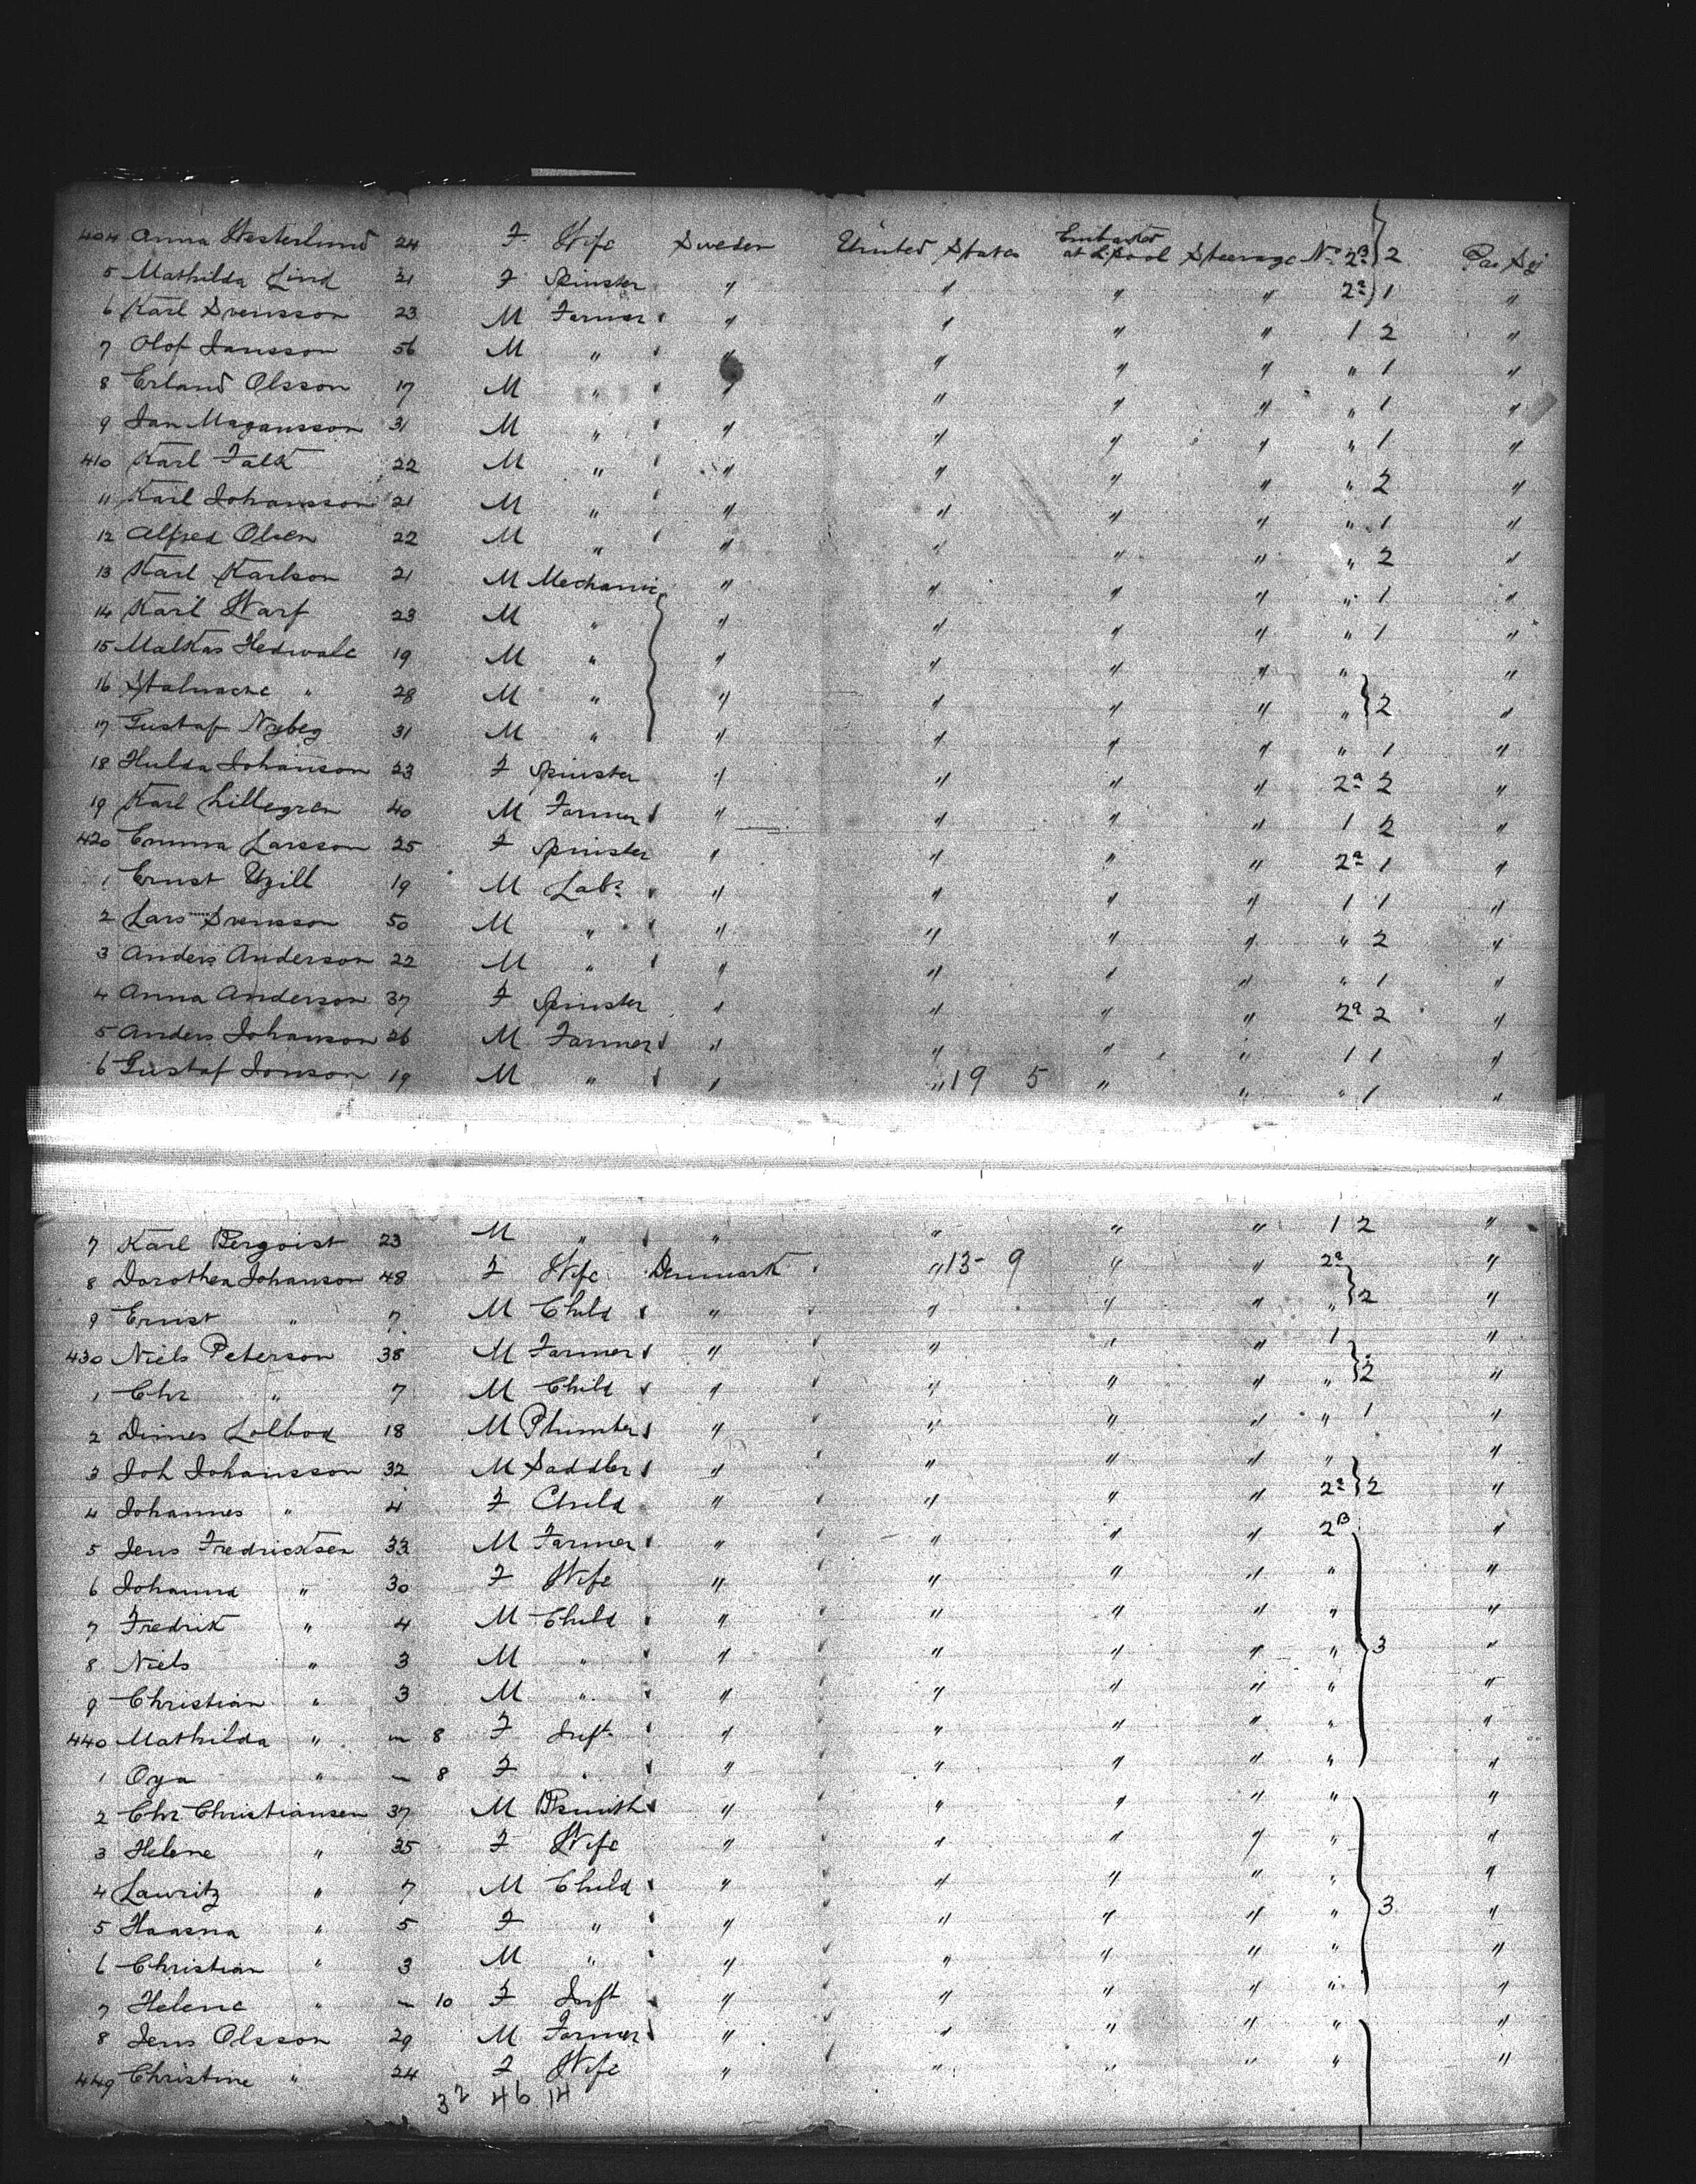 404 Anna Westerlund 24 F Wife Sweden United States Embarked at L'pool Steerage No 2B 2
5 Mathilda Lind 21 F Spinster " " " " 2a 1 "
6 Karl Svensson 23 M Farmer " " " " 1 2 "
7 Olof Jansson 56 M " " " " " " 1 "
8 Erland Olsson 17 M " " " " " " 1 "
9 Jan Magansson 31 M " " " " " " 1 "
410 Karl Falk 22 M " " " " " " 2 "
11 Karl Johansson 21 M " " " " " " 1 "
12 Alfred Olsen 22 M " " " " " " 2 "
13 Karl Karlson 21 M Mechanic " " " " " 1 "
14 Karl Warf 23 M " " " " " " 1 "
15 Malkas Hedwale 19 M " " " " " " "
16 " 28 M " " " " " " 2 "
17 Gustaf Nybeg 31 M " " " " " " 1 "
18 Hulda Johanson 23 F Spinster " " " " 2a 2 "
19 Karl Lillegren 40 M Farmer " " " " 1 2 "
420 Emma Larsson 25 F Spinster " " " " 2a 1 "
1 Ernst 19 M Labr " " " " 1 1 "
2 Lars Svensson 50 M " " " " " " 2 "
3 Anders Anderson 22 M " " " " " " 1 "
4 Anna Anderson 37 F Spinster " " " " 2a 2 "
5 Anders Johanson 26 M Farmer " " " " 1 1 "
6 Gustaf Jonson 19 M " " " 19 5 " " " 1 "
7 Karl Bergoist 23 M " " " " " 1 2 "
8 Dorothea Johanson 48 F Wife Denmark " 13- 9 " " 2a "
9 Ernst " 7 M Child " " " " " 2 "
430 Niels Peterson 38 M Farmer " " " " 1 "
1 Chr " 7 M Child " " " " " 2 "
2 Dimes Lolbod 18 M Plumber " " " " " 1 "
3 Joh Johansson 32 M Saddler " " " " " "
4 Johannes " 4 F Child " " " " 2a 2 "
5 Jens Fredricksen 33 M Farmer " " " " 2B "
6 Johanna " 30 F Wife " " " " " "
7 Fredrik " 4 M Child " " " " " "
8 Niels " 3 M " " " " " " 3 "
9 Christian " 3 M " " " " " " "
440 Mathilda " – 8 F Inft " " " " " "
1 Oga " – 8 F " " " " " " "
2 Chr Christiansen 37 M Bsmith " " " " " "
3 Helene " 35 F Wife " " " " " "
4 Lauritz " 7 M Child " " " " " "
5 Haasna " 5 F " " " " " " 3 "
6 Christian " 3 M " " " " " " "
7 Helene " – 10 F Inft " " " " " "
8 Jens Olsson 29 M Farmer " " " " " "
449 Christine " 24 F Wife " " " " " "
32 46 14